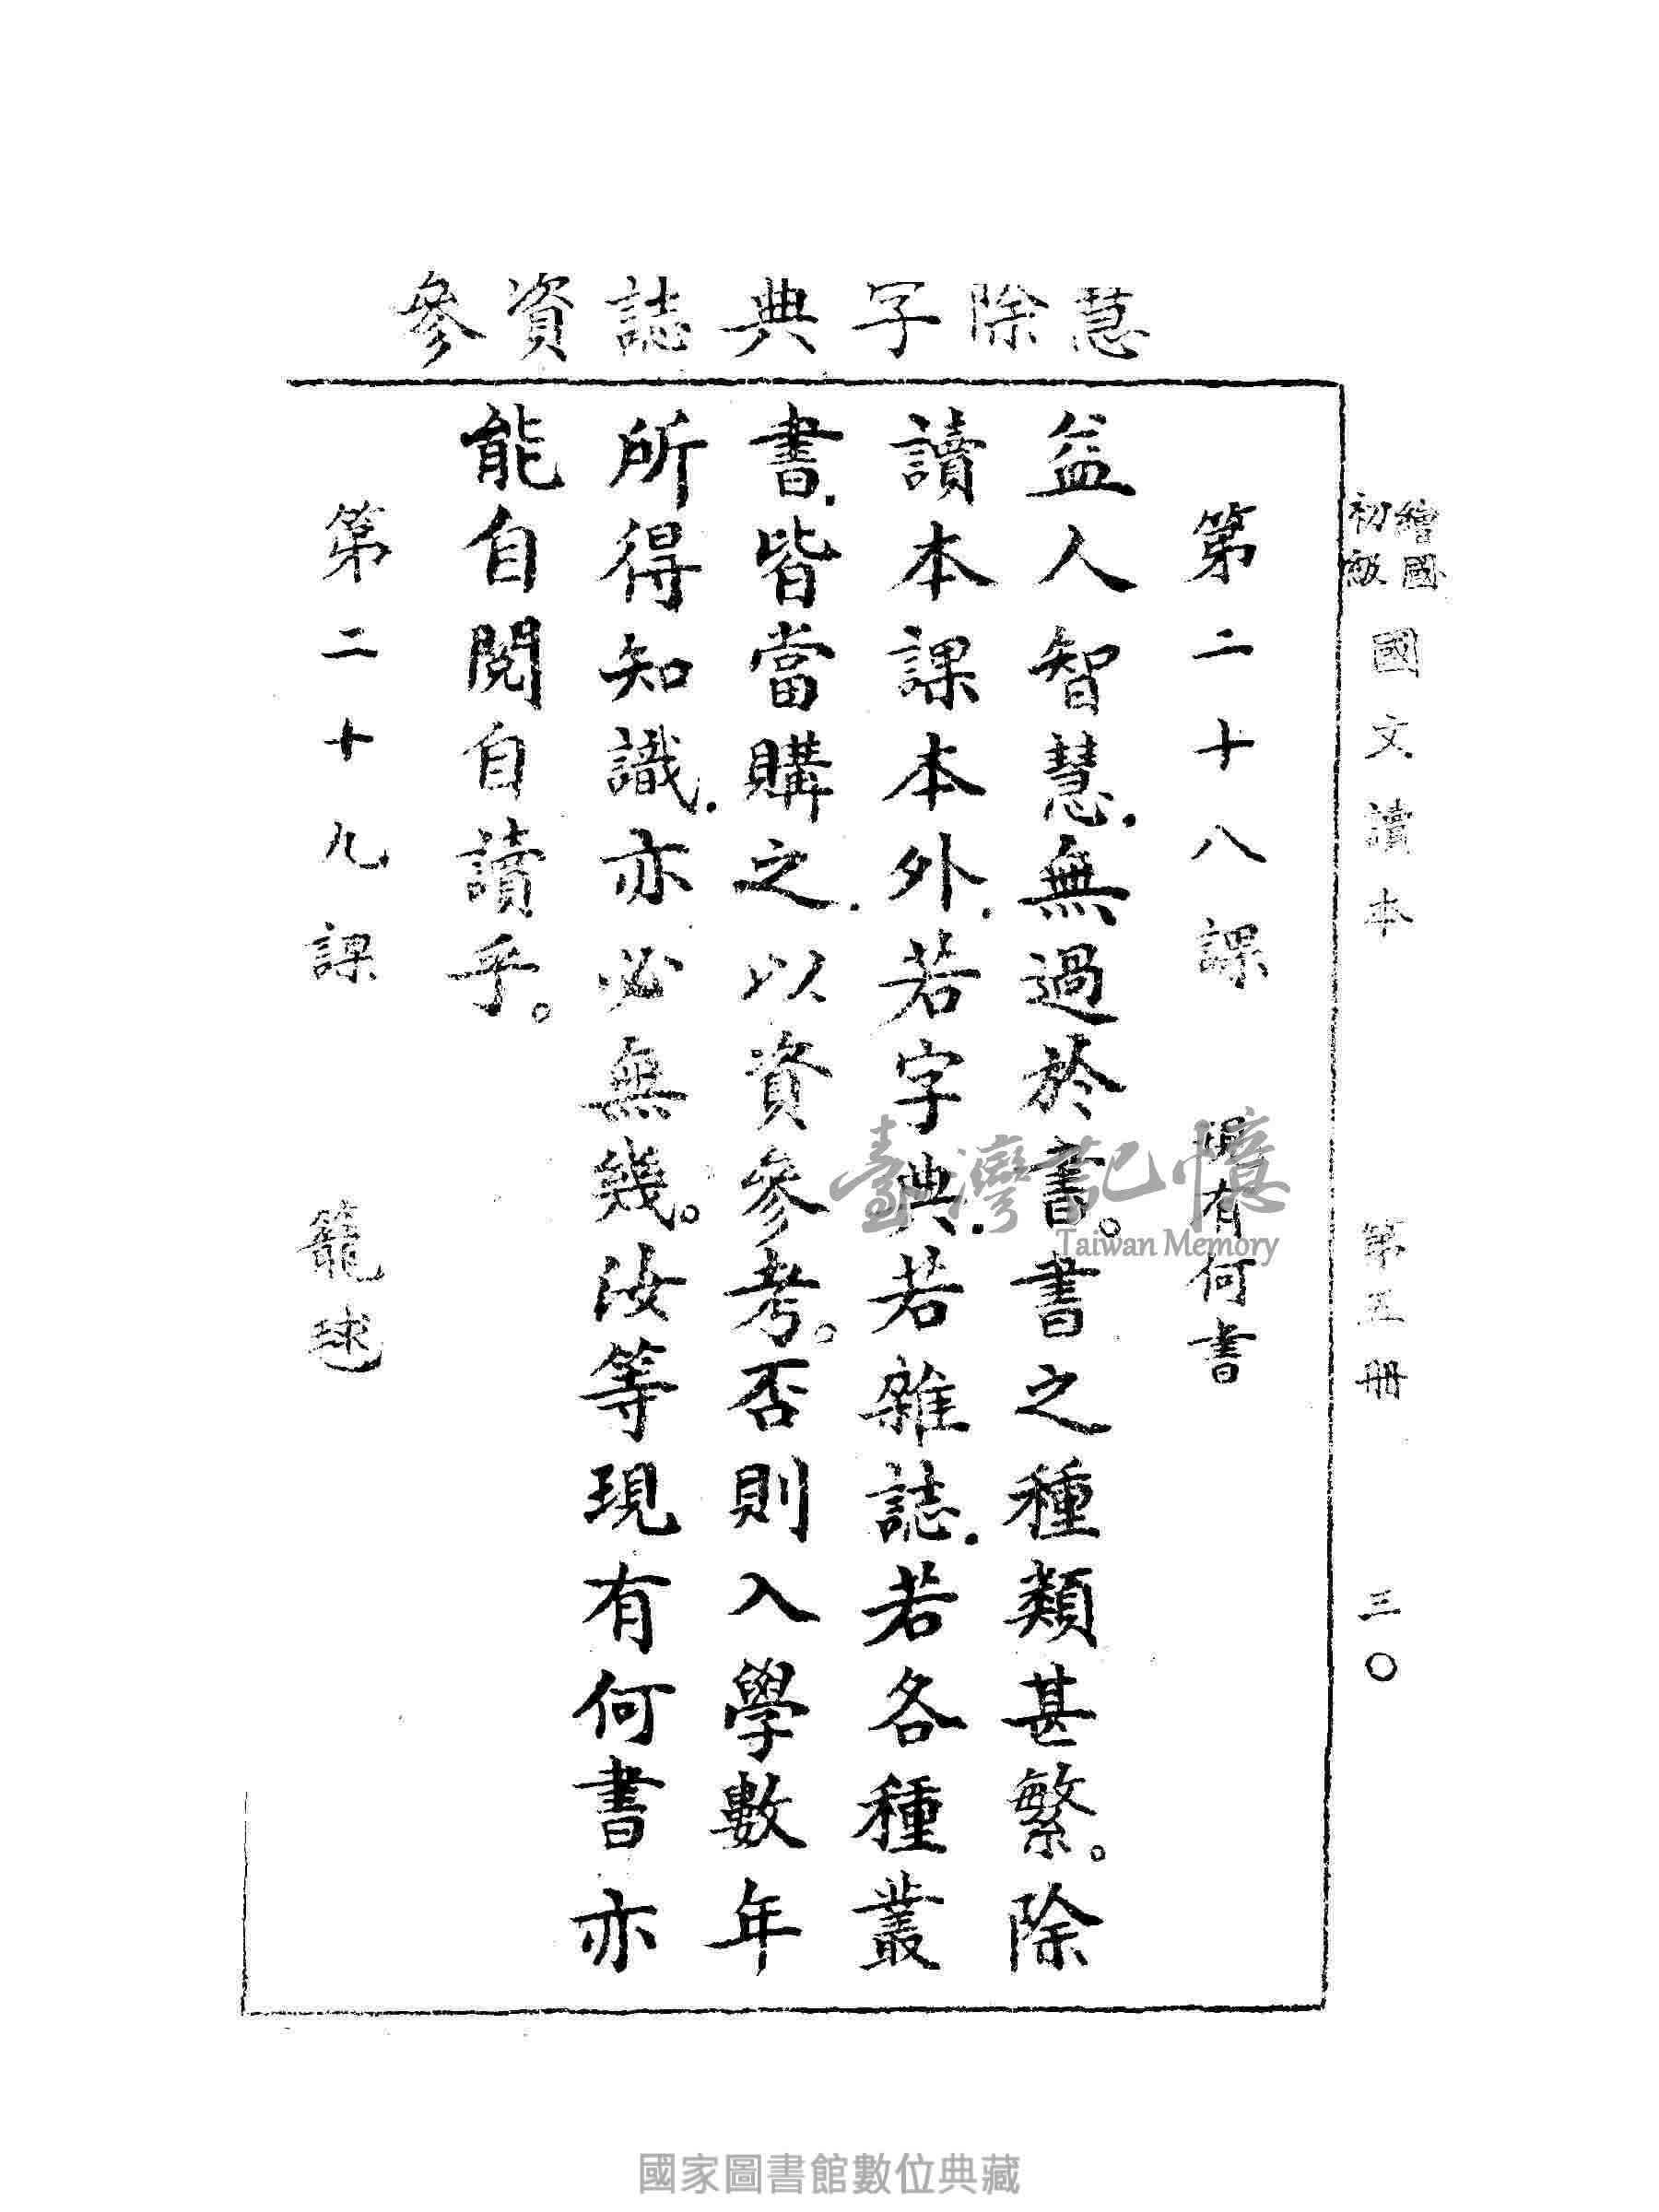 繪圖初級國文讀本　第五冊　三〇
慧除字典誌資參
第二十八課　現有何書
益人智慧．無過於書。書之種類甚繁。除
讀本課本外．若字典．若雜誌．若各種叢
書．皆當購之．以資參考。否則入學數年
所得知識．亦必無幾。汝等現有何書亦
能自閱自讀乎。
第二十九課　籠球
臺灣記憶
Taiwan Memory
國家圖書館數位典藏